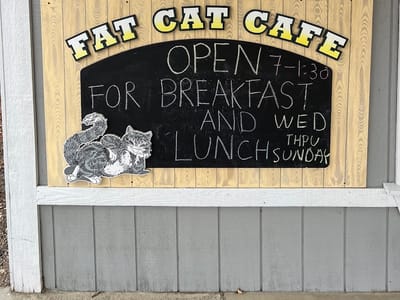 FAT CAT CAFE
OPEN 7-1:30
FOR BREAKFAST
AND WED
LUNCH THRU
SUNDAY